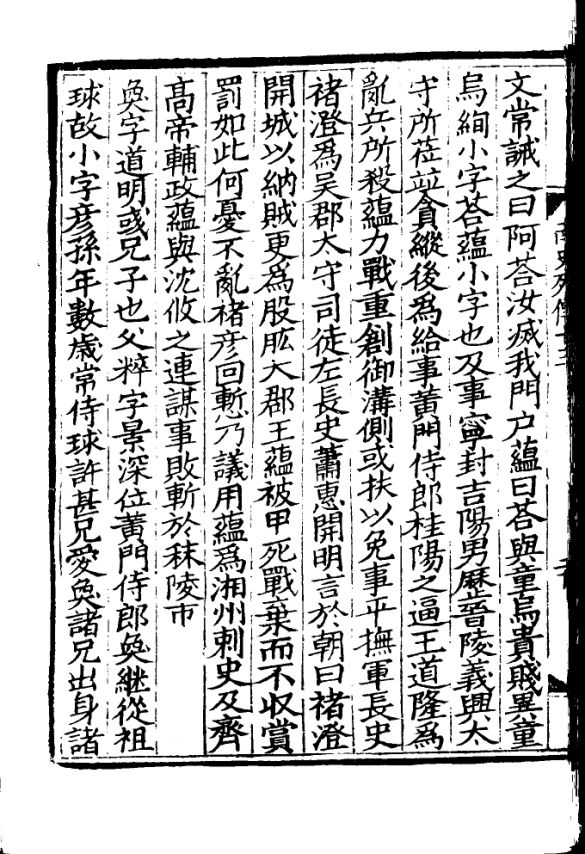 文常誡之曰阿荅汝滅我門户蘊曰荅與童烏貴賤異童
烏絢小字荅蘊小字也及事寧封吉陽男歷晉陵義興太
守所莅竝貪縱後爲給事黄門侍郎桂陽之逼王道隆爲
亂兵所殺蘊力戰重創御溝側或扶以免事平撫軍長史
褚澄爲吴郡太守司徒左長史蕭惠開明言於朝曰褚澄
開城以納賊更爲股肱大郡王蘊被甲死戰棄而不収賞
罰如此何憂不亂褚彦回慙乃議用蘊爲湘州刺史及齊
髙帝輔政蘊與沈攸之連謀事敗斬於秣陵市
奐字道明彧兄子也父粹字景深位黄門侍郎奐継從祖
球故小字彦孫年數歲常侍球許甚兄愛奐諸兄出身諸